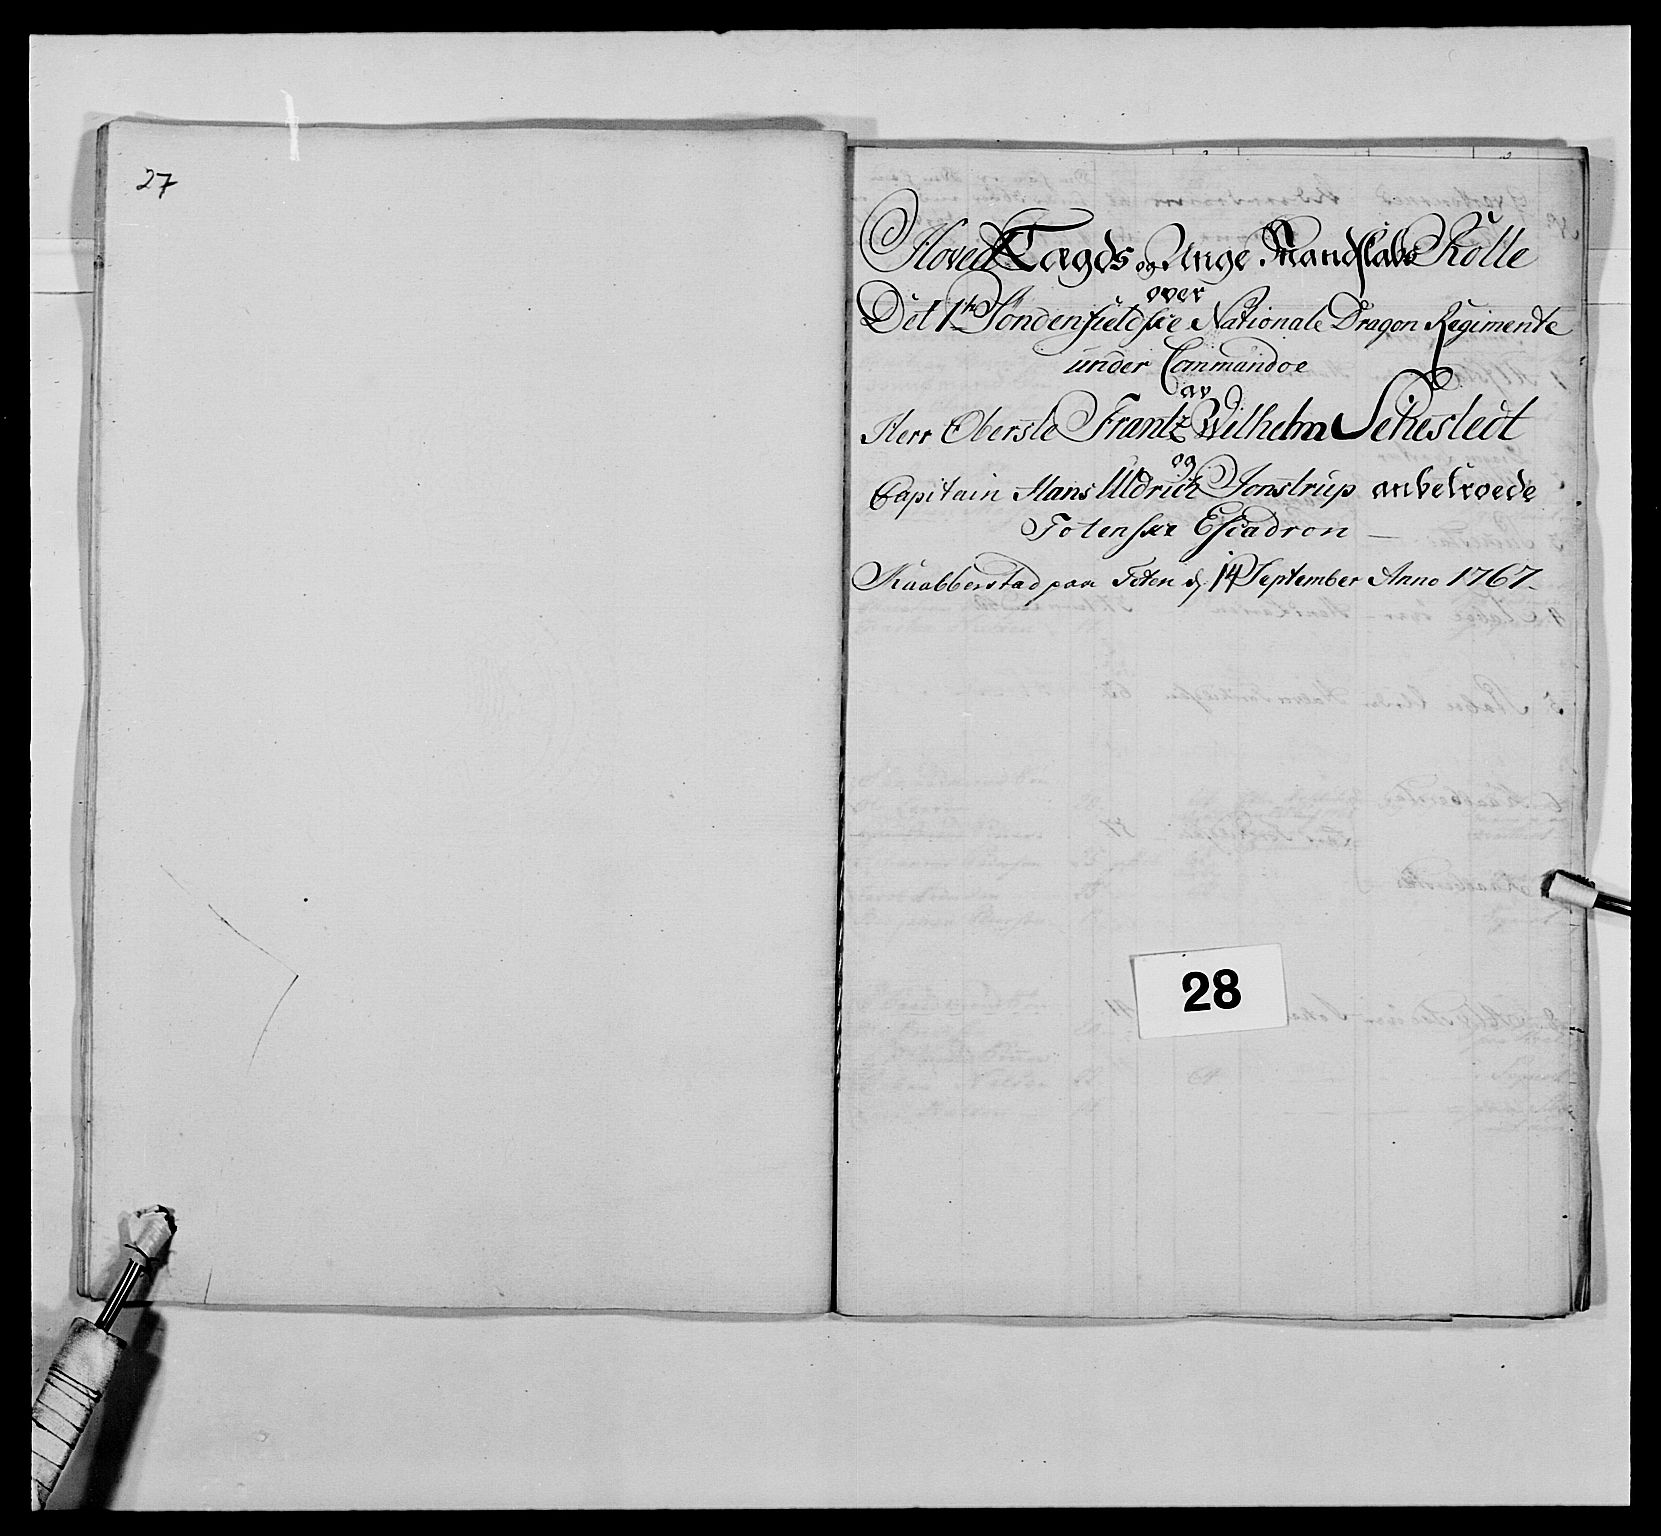 27
Hoved Lægds og Unge Mandskabs Rolle
over
Det 1te Söndenfieldske Nationale Dragon Regimente
under Commandoe
av
Herr Oberste Frantz Wilhelm Sehestedt
og
Capitain Hans Uldrich Jonstrup anbetroede
Totenske Escadron
Kaabberstad paa Toten d. 14 September Anno 1767
28